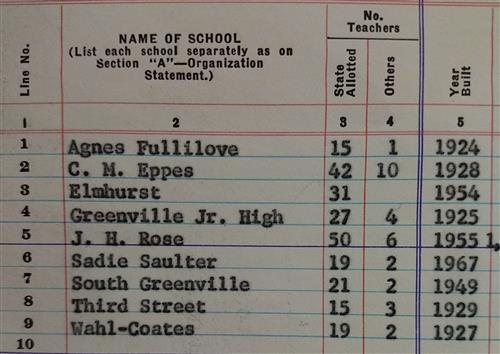 NAME OF SCHOOL
(List each school separately as on
Section "A"—Organization
Statement.)
No.
Teachers
Line No.
State
Allotted
Others
Year
Built
1 2 3 4 5
1 Agnes Fullilove 15 1 1924
2 C. M. Eppes 42 10 1928
3 Elmhurst 31 1954
4 Greenville Jr. High 27 4 1925
5 J. H. Rose 50 6 1955 1,
6 Sadie Saulter 19 2 1967
7 South Greenville 21 2 1949
8 Third Street 15 3 1929
9 Wahl-Coates 19 2 1927
10